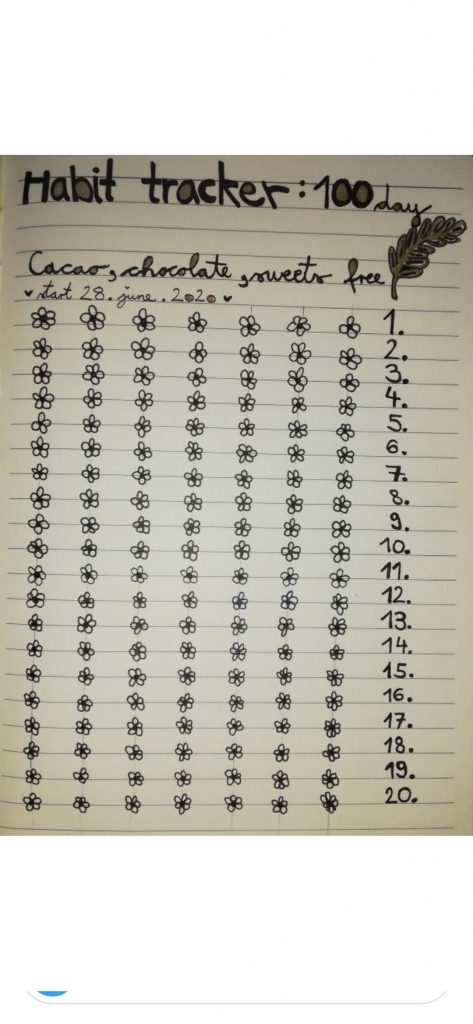 Habit tracker: 100 day
Cacao, chocolate, sweets free
♥ start 28. june. 2020 ♥
1.
2.
3.
4.
5.
6.
7.
8.
9.
10.
11.
12.
13.
14.
15.
16.
17.
18.
19.
20.